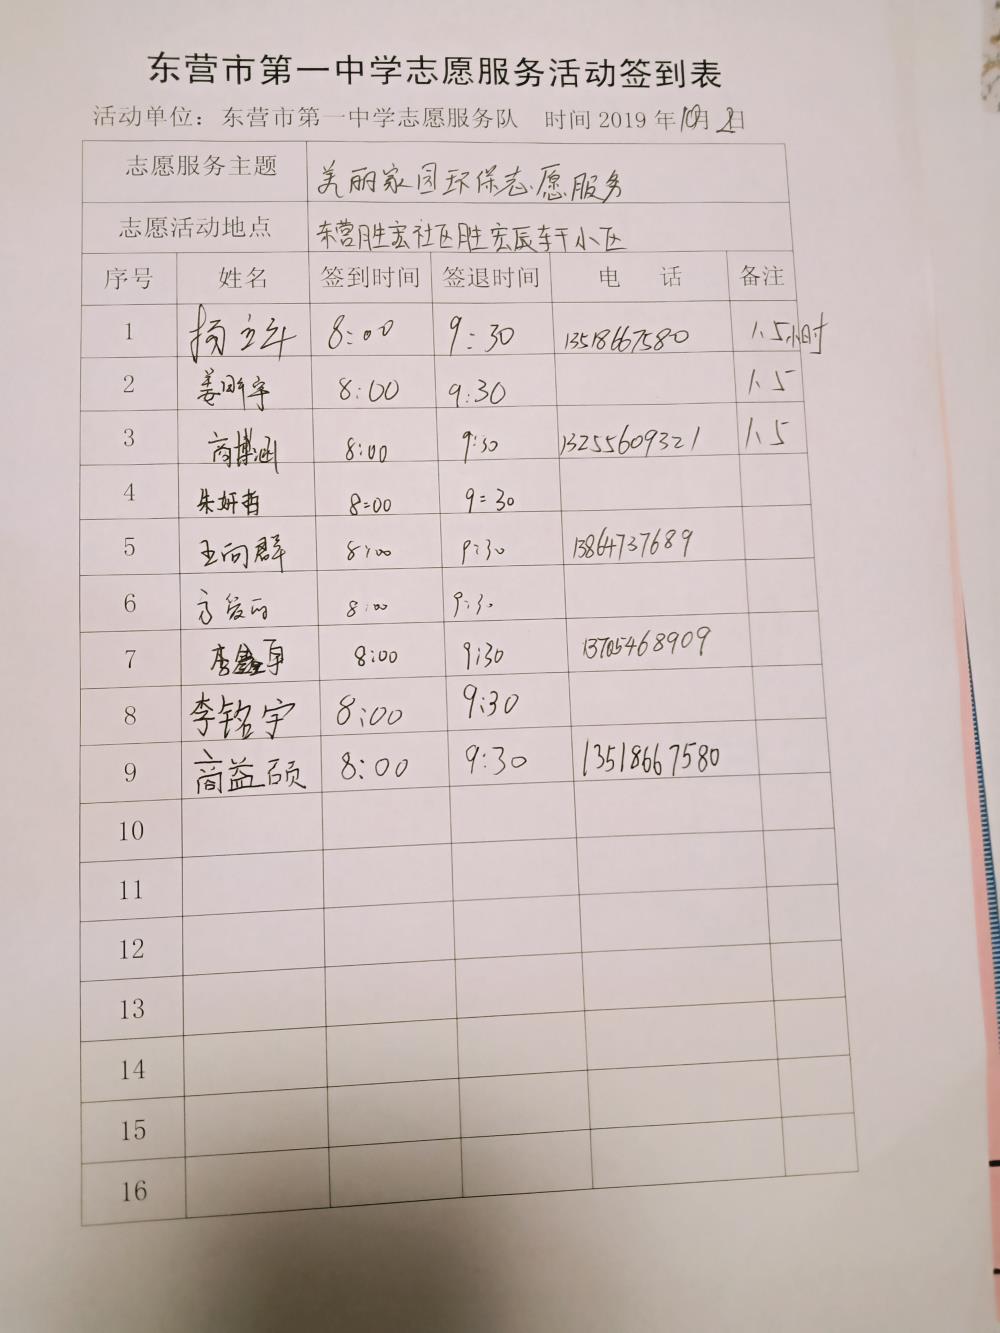 东营市第一中学志愿服务活动签到表
活动单位：东营市第一中学志愿服务队 时间 2019 年10月2日
志愿服务主题 美丽家园环保志愿服务
志愿活动地点 东营胜宏社区胜宏辰轩小区
序号 姓名 签到时间 签退时间 电 话 备注
1 杨立斗 8:00 9:30 13518667580 1.5小时
2 姜明宇 8:00 9:30 1.5
3 商博涵 8:00 9:30 13255609321 1.5
4 朱妍哲 8:00 9:30
5 王向群 8:00 9:30 13864737689
6 8:00 9:30
7 8:00 9:30 13705468909
8 李铭宇 8:00 9:30
9 商益硕 8:00 9:30 13518667580
10
11
12
13
14
15
16